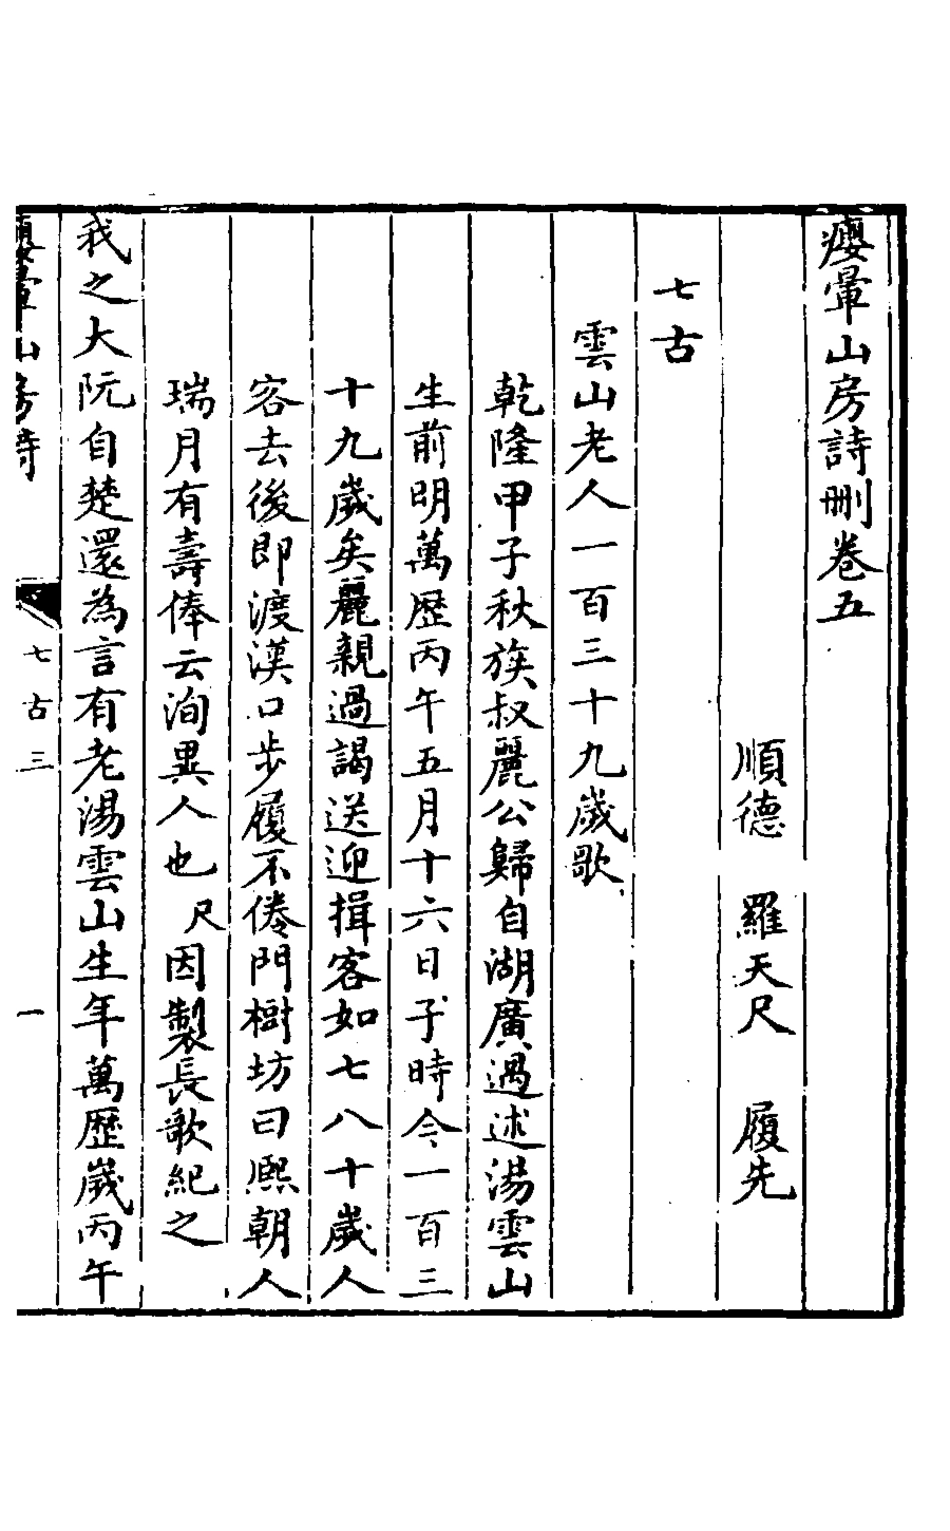 癭暈山房詩刪卷五
順德 羅天尺 履先
七古
雲山老人一百三十九歲歌
乾隆甲子秋族叔麗公歸自湖廣過述湯雲山
生前明萬歷丙午五月十六日子時今一百三
十九歲矣麗親過謁送迎揖客如七八十歲人
客去後即渡漢口步履不倦門樹坊曰熙朝人
瑞月有壽俸云洵異人也尺因製長歌紀之
我之大阮自楚還為言有老湯雲山生年萬歷歲丙午
癭暈山房詩 七古三 一